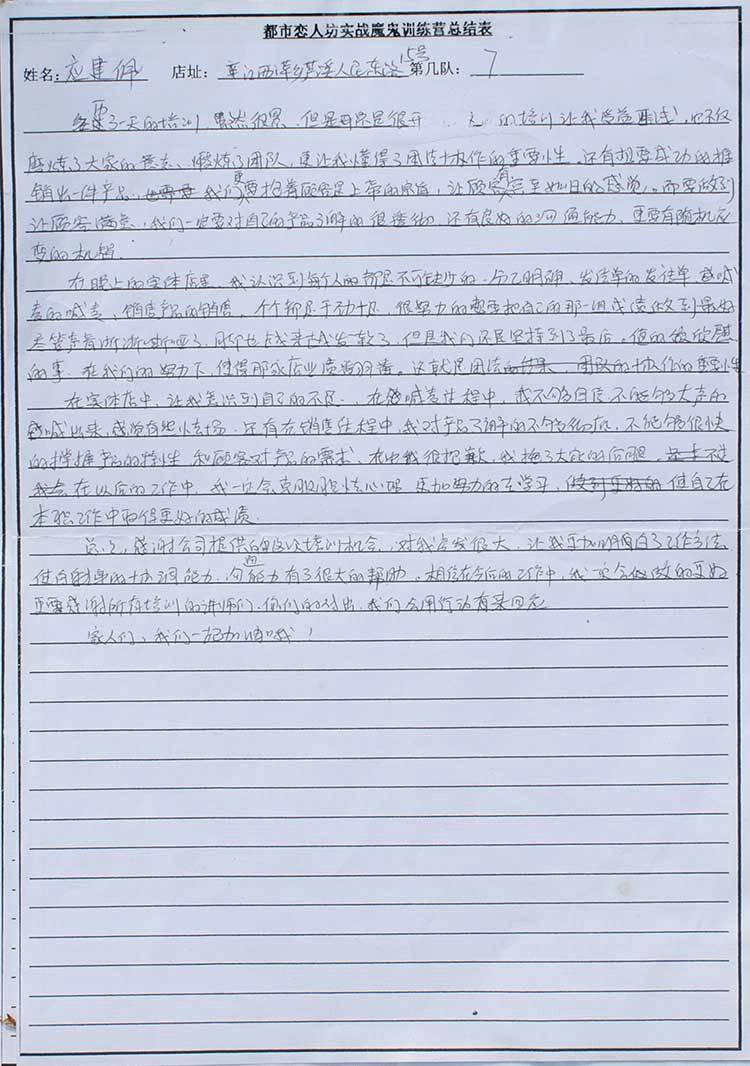 都市恋人坊实战魔鬼训练营总结表
姓名：应建佩 店址：西潭乡 人民东路15号 第几队：7
经历了一天的培训 虽然很累 但是 是很开 的培训让我受益 ，也不仅
磨炼了大家的意志、锻炼了团队，更让我懂得了团结协作的重要性。还有想要成功的推
销出一件产品， 我们更要抱着顾客是上帝的 ，让顾客有宾至如归的感觉。而要做到
让顾客满意，我们一定要对自己的产品了解的很透彻，还有良好的沟通能力，更要有随机应
变的机智。
在晚上的实体店里，我认识到每个人都是不可缺少的。分工明确，发传单的发传单，喊
麦的喊麦，销售产品的销售，个个都是干劲十足，很努力的想要把自己的那一组成绩做到最好
尽管声音渐渐嘶哑了，脚 了，但是我们还是坚持到了最后。值的欣慰
的事，在我们的努力下，使得那家店业绩 。这就是团结 ，团队的协作的重要性
在实体店中，让我意识到自己的不足，在喊麦过程中，我不够自信不能够大声的
喊出来，感觉有些怯场。还有在销售过程中，我对产品了解的不够彻底，不能够很快
的掌握产品的特性 和顾客对产品的需求，在此我很抱歉，我拖了大家的后腿，
在以后的工作中，我一定会克服胆怯心理 更加努力的去学习， 使自己在
本职工作中取得更好的成绩。
总之，感谢公司提供的这次培训机会，对我启发很大，让我更加明白了工作方法
使自身的协调能力、沟通能力有了很大的帮助。相信在今后的工作中，我 会做的更好
更要感谢所有培训的讲师们，你们的付出，我们会用行动 来回
家人们，我们一起加油哦！